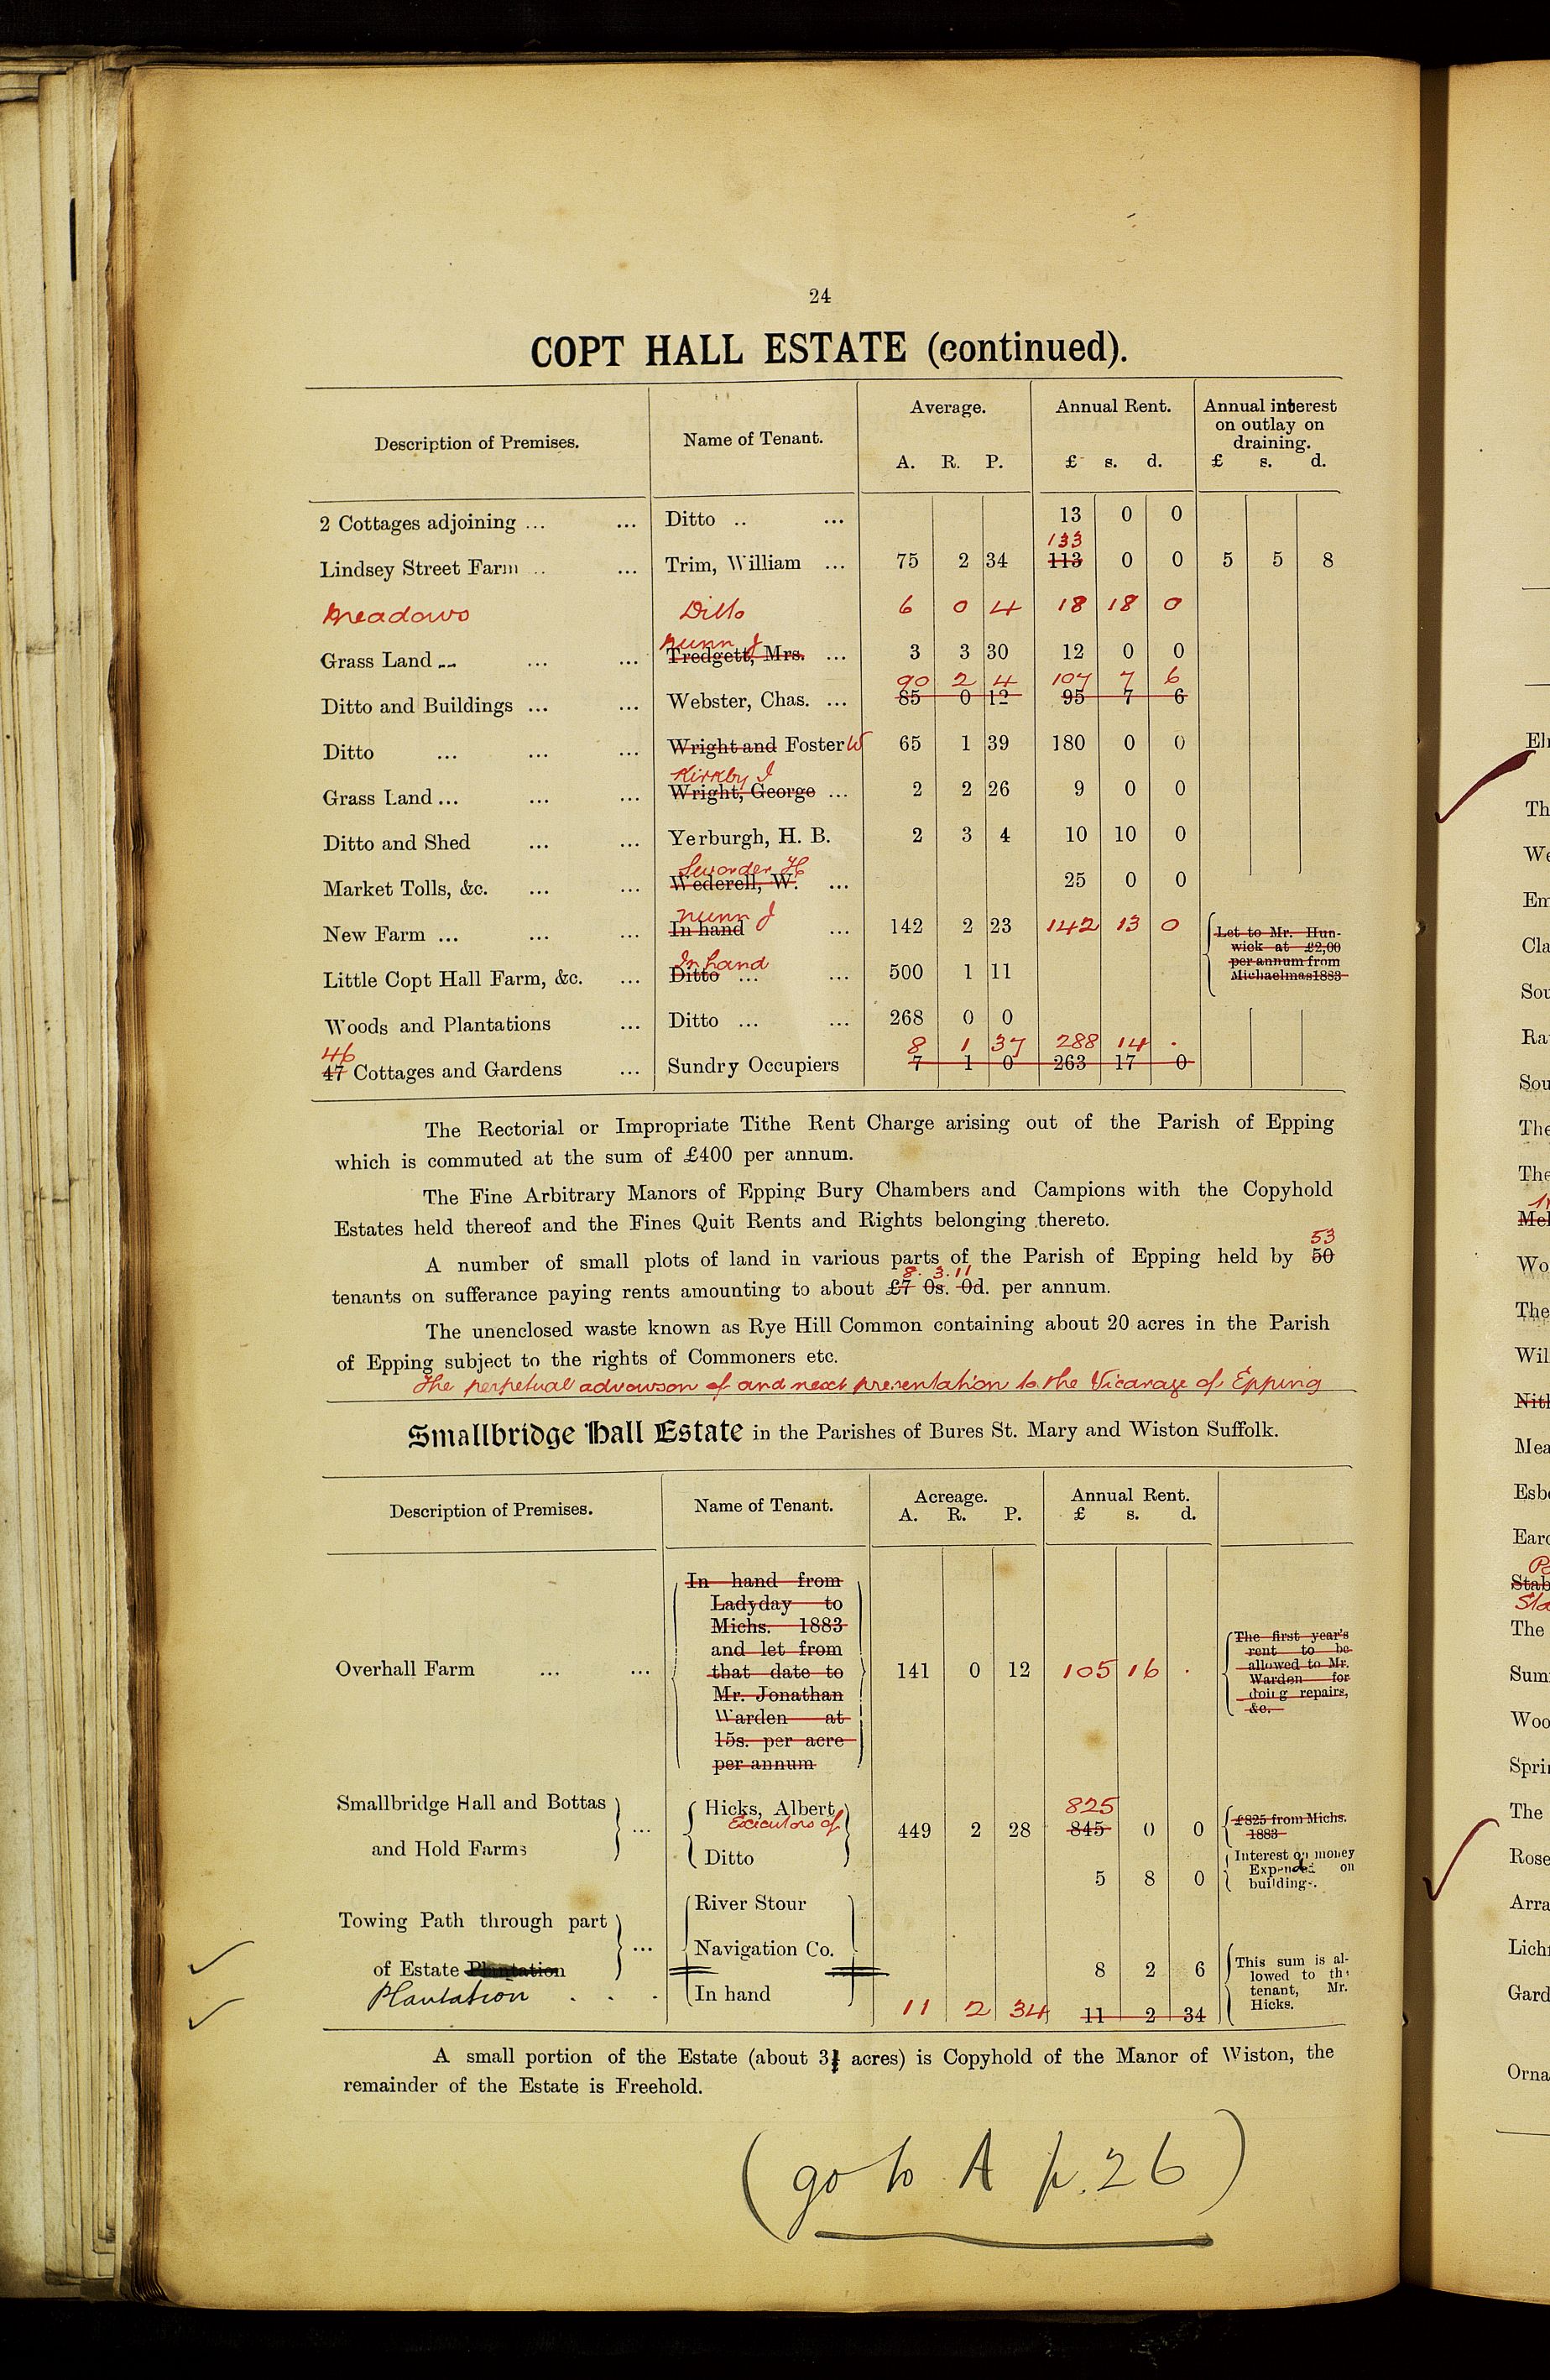 24
COPT HALL ESTATE (continued).
Description of Premises. Name of Tenant. Average. A. R. P. Annual Rent. £ s. d. Annual interest on outlay on draining. £ s. d.
2 Cottages adjoining ... ... Ditto .. ... 13 0 0
133
Lindsey Street Farm .. ... Trim, William ... 75 2 34 113 0 0 5 5 8
Meadows Ditto 6 0 4 18 18 0
Nunn J
Grass Land ... ... ... Tredgett, Mrs. ... 3 3 30 12 0 0
90 2 4 107 7 6
Ditto and Buildings ... ... Webster, Chas. ... 85 0 12 95 7 6
Ditto ... ... ... Wright and Foster W 65 1 39 180 0 0
Kirkby J
Grass Land ... ... ... Wright, George ... 2 2 26 9 0 0
Ditto and Shed ... ... Yerburgh, H. B. 2 3 4 10 10 0
Sworder H
Market Tolls, &c. ... ... Wederell, W. ... 25 0 0
Nunn J
New Farm ... ... ... In hand ... 142 2 23 142 13 0
Let to Mr. Hun-
wick at £2,00
per annum from
Michaelmas 1883
In hand
Little Copt Hall Farm, &c. ... Ditto ... ... 500 1 11
Woods and Plantations ... Ditto ... ... 268 0 0
46 8 1 37 288 14 .
47 Cottages and Gardens ... Sundry Occupiers 7 1 0 263 17 0
The Rectorial or Impropriate Tithe Rent Charge arising out of the Parish of Epping
which is commuted at the sum of £400 per annum.
The Fine Arbitrary Manors of Epping Bury Chambers and Campions with the Copyhold
Estates held thereof and the Fines Quit Rents and Rights belonging thereto.
53
A number of small plots of land in various parts of the Parish of Epping held by 50
8. 3. 11
tenants on sufferance paying rents amounting to about £7 0s. 0d. per annum.
The unenclosed waste known as Rye Hill Common containing about 20 acres in the Parish
of Epping subject to the rights of Commoners etc.
The perpetual advowson of and next presentation to the Vicarage of Epping
Smallbridge Hall Estate in the Parishes of Bures St. Mary and Wiston Suffolk.
Description of Premises. Name of Tenant. Acreage. A. R. P. Annual Rent. £ s. d.
In hand from
Ladyday to
Michs. 1883
and let from
that date to
Mr. Jonathan
Warden at
15s. per acre
per annum
Overhall Farm ... ... 141 0 12 105 16 .
The first year's
rent to be
allowed to Mr.
Warden for
doing repairs,
&c.
825
Smallbridge Hall and Bottas
and Hold Farms ...
Hicks, Albert
Executors of
449 2 28 845 0 0
£825 from Michs.
1883
Ditto 5 8 0
Interest on money
Expended on
buildings.
Towing Path through part
of Estate Plantation ...
River Stour
Navigation Co.
8 2 6
This sum is al-
lowed to the
tenant, Mr.
Hicks.
Plantation . . . In hand 11 2 34 11 2 34
A small portion of the Estate (about 3½ acres) is Copyhold of the Manor of Wiston, the
remainder of the Estate is Freehold.
(go to A p. 26)
Th
We
Em
Cla
Sou
Ra
Sou
The
The
Mel
Wo
The
Wil
Nith
Mea
Esb
Earc
Stab
Sta
The
Sum
Woo
Sprin
The
Rose
Arra
Lich
Gard
Orna